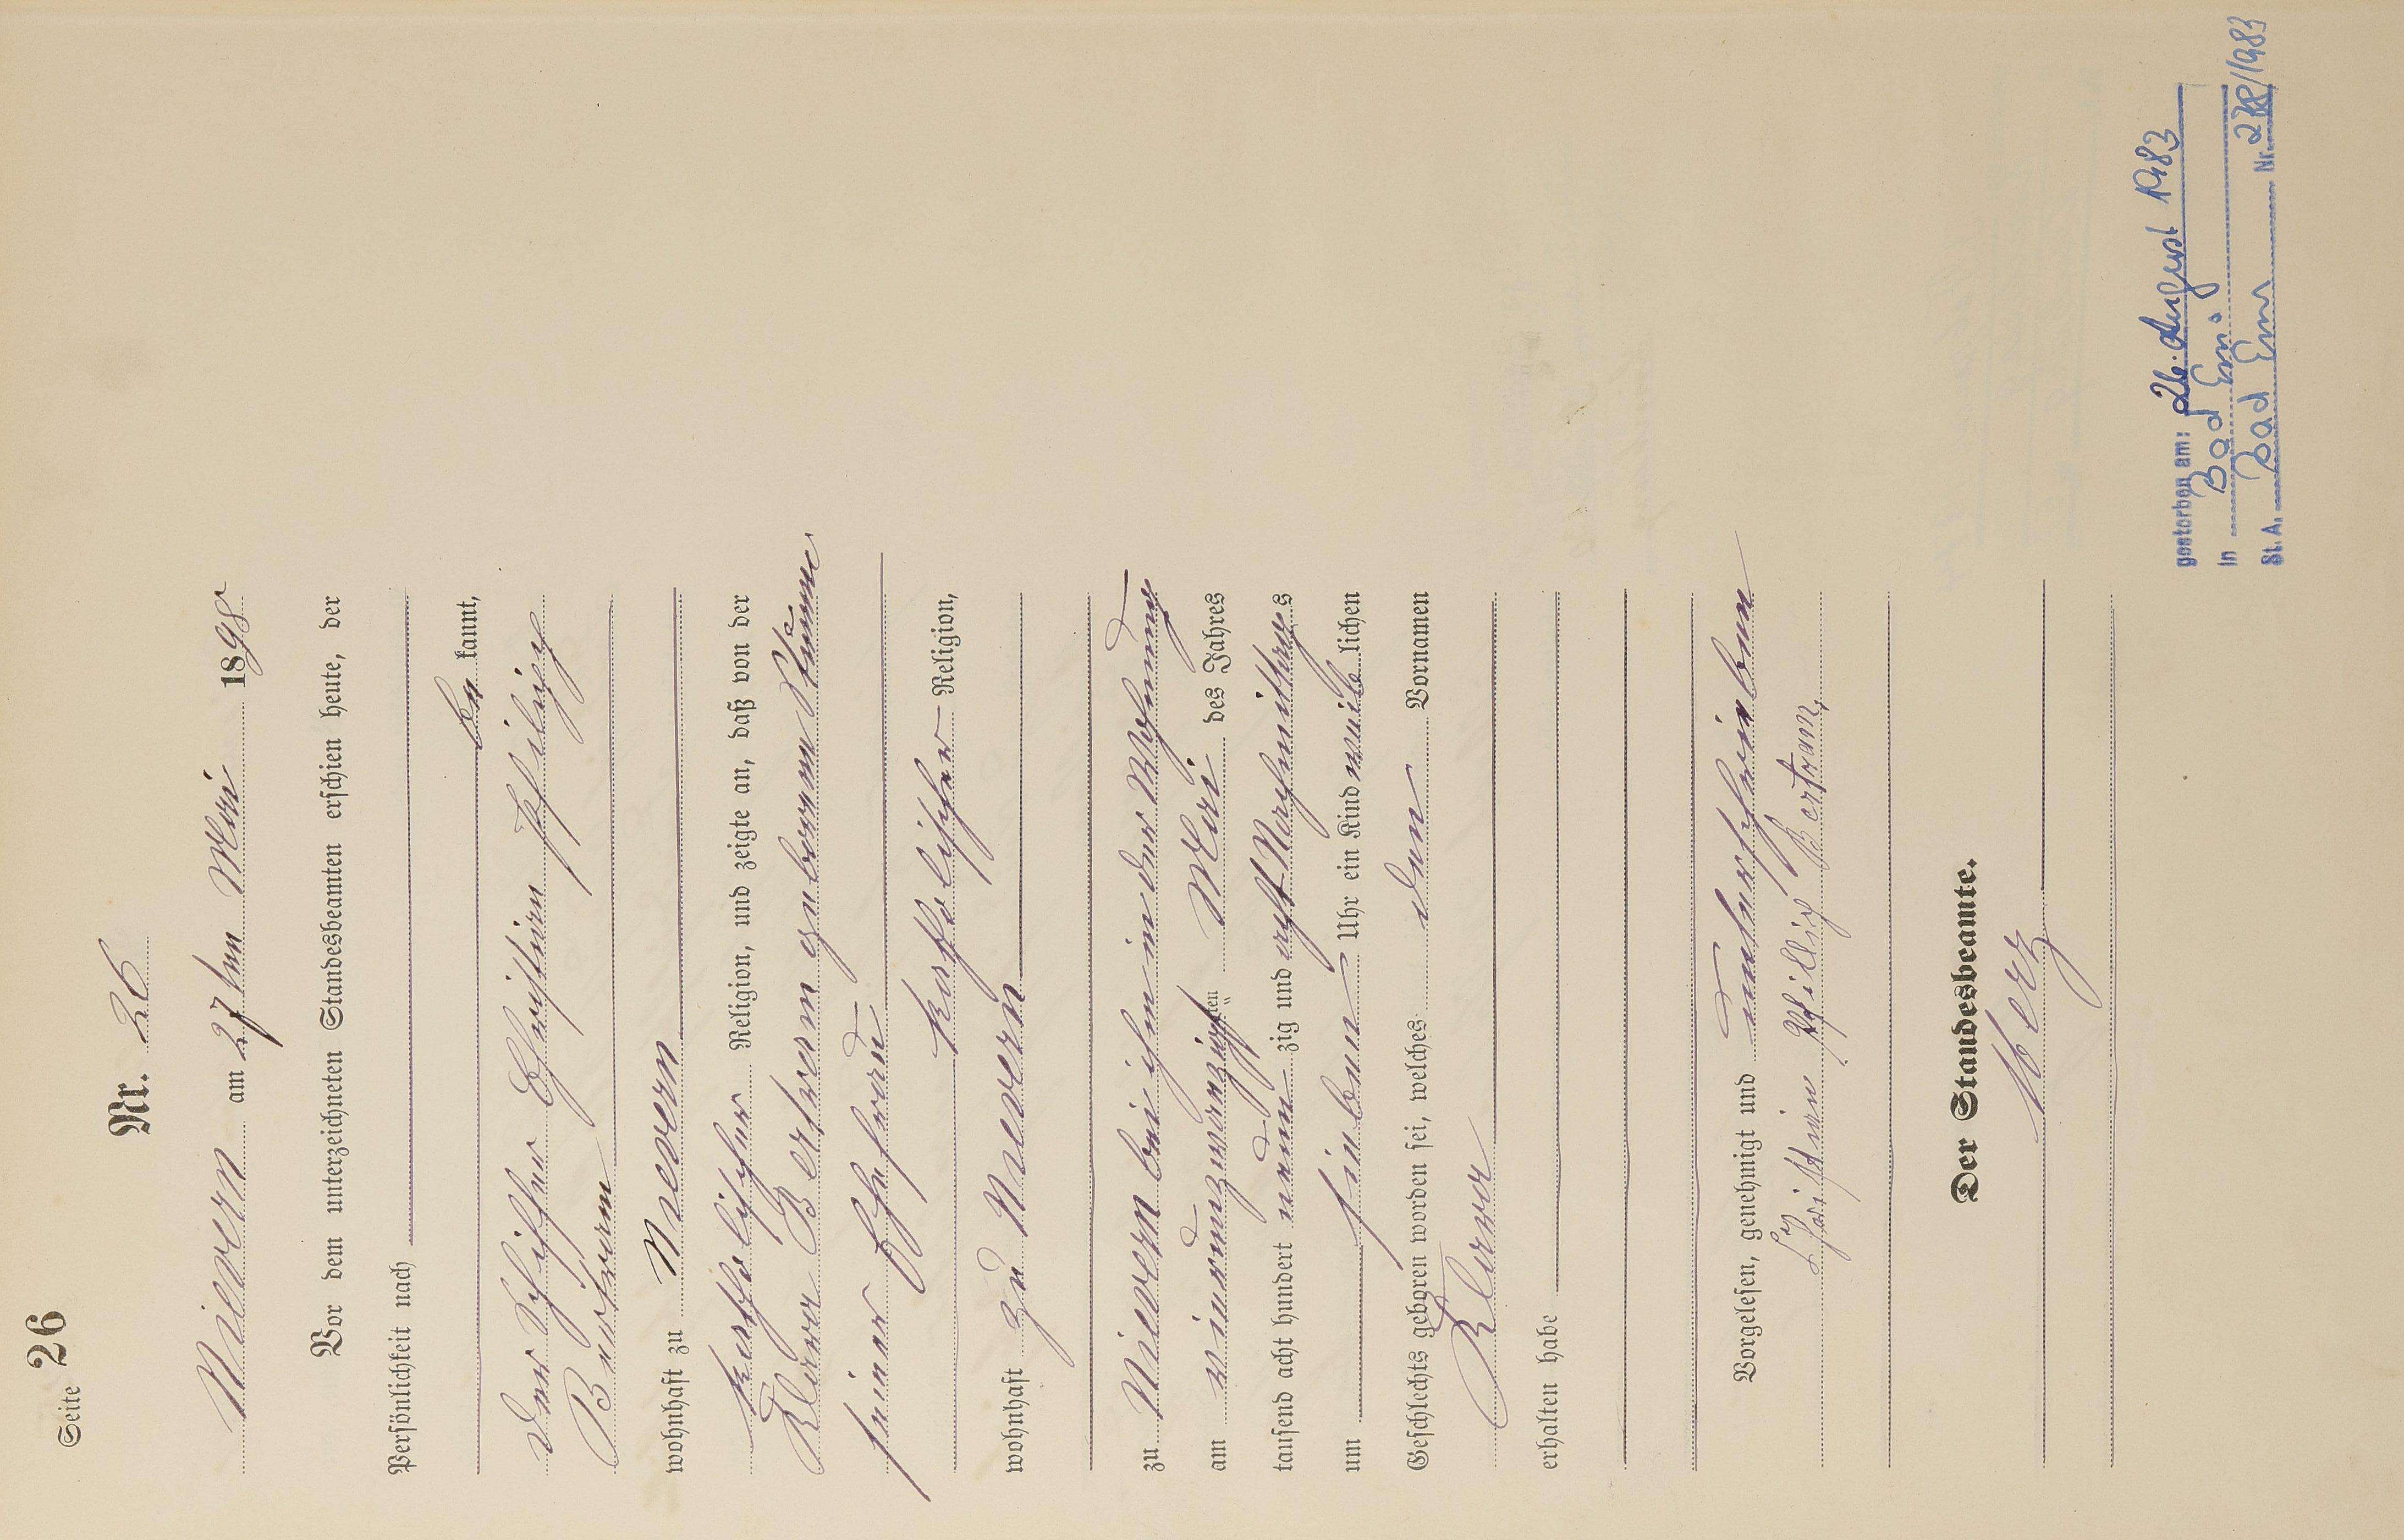 Seite 26
Nr. 26
Nievern am 27ten Mai 1898
Vor dem unterzeichneten Standesbeamten erschien heute, der
Persönlichkeit nach
be kannt,
der Schiffer Christian Philipp
Bertram
wohnhaft zu Nievern
katholischer Religion, und zeigte an, daß von der
Klara Bertram geborenen
seiner Ehefrau
katholischer Religion,
wohnhaft zu Nievern
zu Nievern bei ihm in der Wohnung
am vierundzwanzigsten Mai des Jahres
tausend acht hundert neun zig und acht Nachmittags
um sieben Uhr ein Kind weib lichen
Geschlechts geboren worden sei, welches den Vornamen
Klara
erhalten habe
Vorgelesen, genehmigt und unterschrieben
Christian Phillip Bertram,
Der Standesbeamte.
Herz
gestorben am: 26. August 1983
in Bad Ems
St. A. Bad Ems Nr. /1983